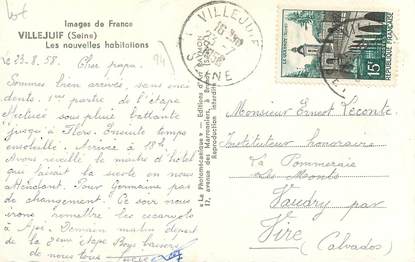 Images de France
VILLEJUIF (Seine)
Les nouvelles habitations
94
Le 23.8.58. Cher papa.
Sommes bien arrivés, sans inci
dents. 1ère partie de l'étape
sous pluie battante
jusqu'à Flers. Ensuite temps
ensoleillé. Arrivée à 18h.
Avons réveillé le maître d'hôtel
qui faisait la sieste en nous
attendant. Pour Germaine pas
de changement. Ce soir nous
irons remettre les
à Demain matin départ
de la 2ème étape. Bons baisers
de nous tous
"La Photomécanique" - Editions d'Art
17, avenue des Marronniers, à
Reproduction interdite
VILLEJUIF
SEINE
1958
REPUBLIQUE FRANCAISE
15F
Monsieur Ernest Leconte
Instituteur honoraire
La Pommeraie
Les Monts
Vaudry par
Vire
(Calvados)